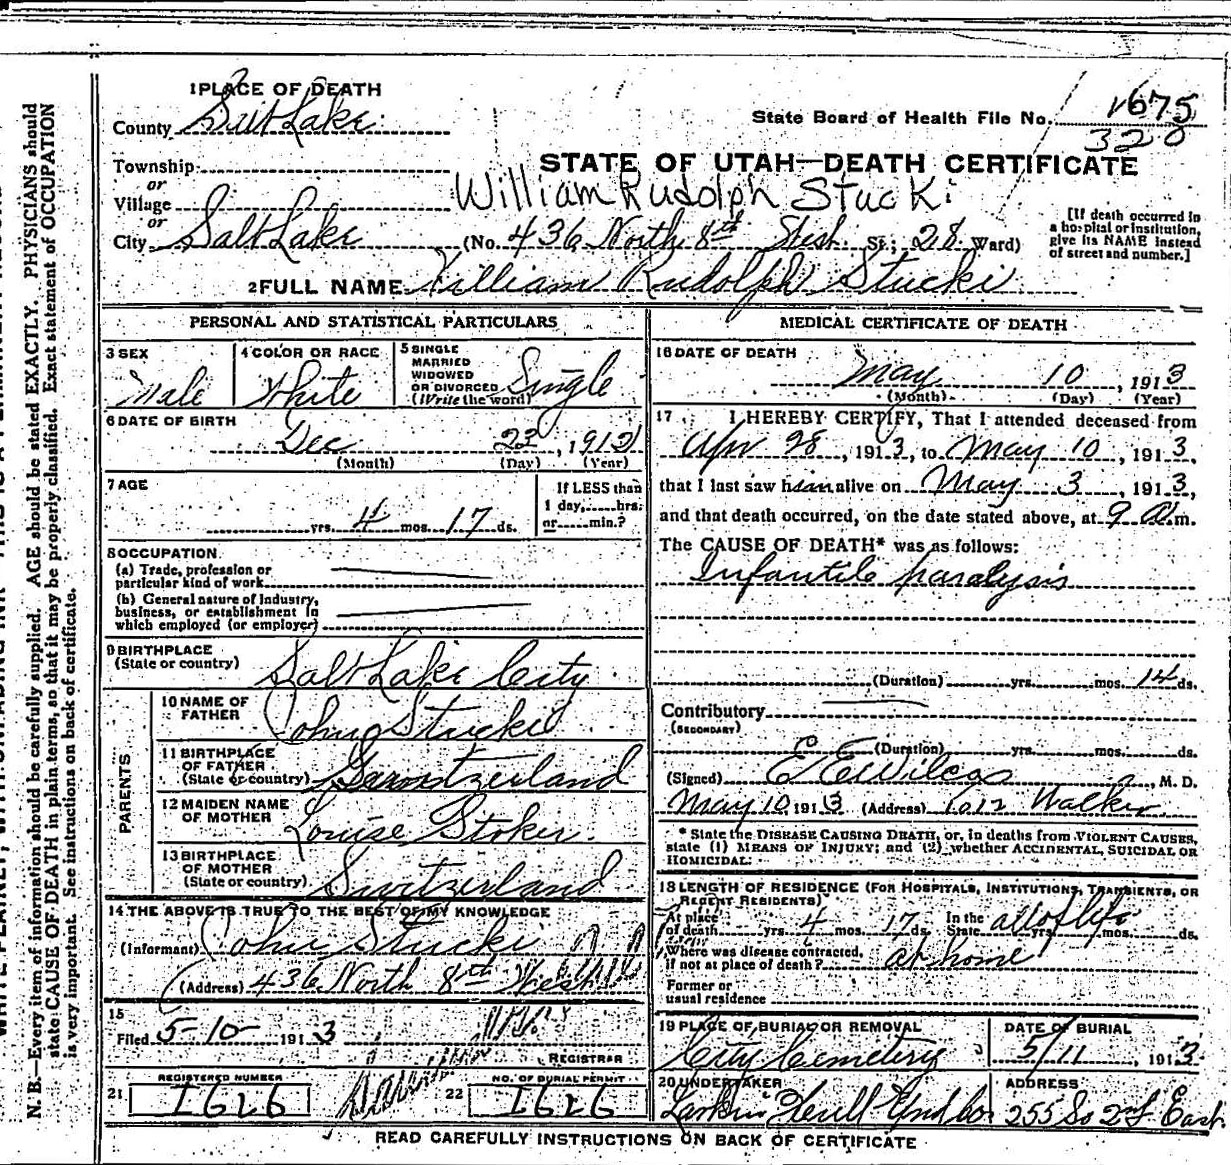 1 PLACE OF DEATH
County Salt Lake
State Board of Health File No. 1675
320
Township
or
Village
or
City Salt Lake
STATE OF UTAH—DEATH CERTIFICATE
William Rudolph Stucki
(No. 436 North 8th West St; 28 Ward)
[If death occurred in
a hospital or institution,
give its NAME instead
of street and number.]
2 FULL NAME William Rudolph Stucki
PERSONAL AND STATISTICAL PARTICULARS
3 SEX
Male
4 COLOR OR RACE
White
5 SINGLE
MARRIED
WIDOWED
OR DIVORCED
(Write the word)
Single
6 DATE OF BIRTH
Dec 23, 1912
(Month) (Day) (Year)
7 AGE
yrs. 4 mos. 17 ds.
If LESS than
1 day, hrs.
or min.?
8 OCCUPATION
(a) Trade, profession or
particular kind of work
(b) General nature of Industry,
business, or establishment in
which employed (or employer)
9 BIRTHPLACE
(State or country)
Salt Lake City
PARENTS
10 NAME OF
FATHER
John Stucki
11 BIRTHPLACE
OF FATHER
(State or country)
12 MAIDEN NAME
OF MOTHER
Louise Stoker
13 BIRTHPLACE
OF MOTHER
(State or country)
Switzerland
14 THE ABOVE IS TRUE TO THE BEST OF MY KNOWLEDGE
(Informant) John Stucki
(Address) 436 North 8th West
15
Filed 5-10- 1913
REGISTRAR
21 REGISTERED NUMBER
1626
22 NO. OF BURIAL PERMIT
1626
MEDICAL CERTIFICATE OF DEATH
16 DATE OF DEATH
May 10, 1913
(Month) (Day) (Year)
17 I HEREBY CERTIFY, That I attended deceased from
Apr 28, 1913, to May 10, 1913
that I last saw him alive on May 3, 1913,
and that death occurred, on the date stated above, at 9 a.m.
The CAUSE OF DEATH* was as follows:
Infantile paralysis
(Duration) yrs. mos. 14 ds.
Contributory
(SECONDARY)
(Duration) yrs. mos. ds.
(Signed) E E Wilcox, M. D.
May 10, 1913 (Address) 612 Walker
* State the DISEASE CAUSING DEATH, or, in deaths from VIOLENT CAUSES,
state (1) MEANS OF INJURY; and (2) whether ACCIDENTAL, SUICIDAL OR
HOMICIDAL.
18 LENGTH OF RESIDENCE (FOR HOSPITALS, INSTITUTIONS, TRANSIENTS, OR
RECENT RESIDENTS)
At place
of death yrs. 4 mos. 17 ds.
In the
State all of life yrs. mos. ds.
Where was disease contracted,
if not at place of death? at home
Former or
usual residence
19 PLACE OF BURIAL OR REMOVAL
City Cemetery
DATE OF BURIAL
5/11, 1913
20 UNDERTAKER
ADDRESS
255 So 2d East
READ CAREFULLY INSTRUCTIONS ON BACK OF CERTIFICATE
N. B.—Every item of information should be carefully supplied. AGE should be stated EXACTLY. PHYSICIANS should
state CAUSE OF DEATH in plain terms, so that it may be properly classified. Exact statement of OCCUPATION
is very important. See instructions on back of certificate.